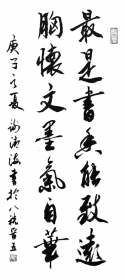 最是書香能致遠
胸懷文墨氣自華
庚子之夏 書於